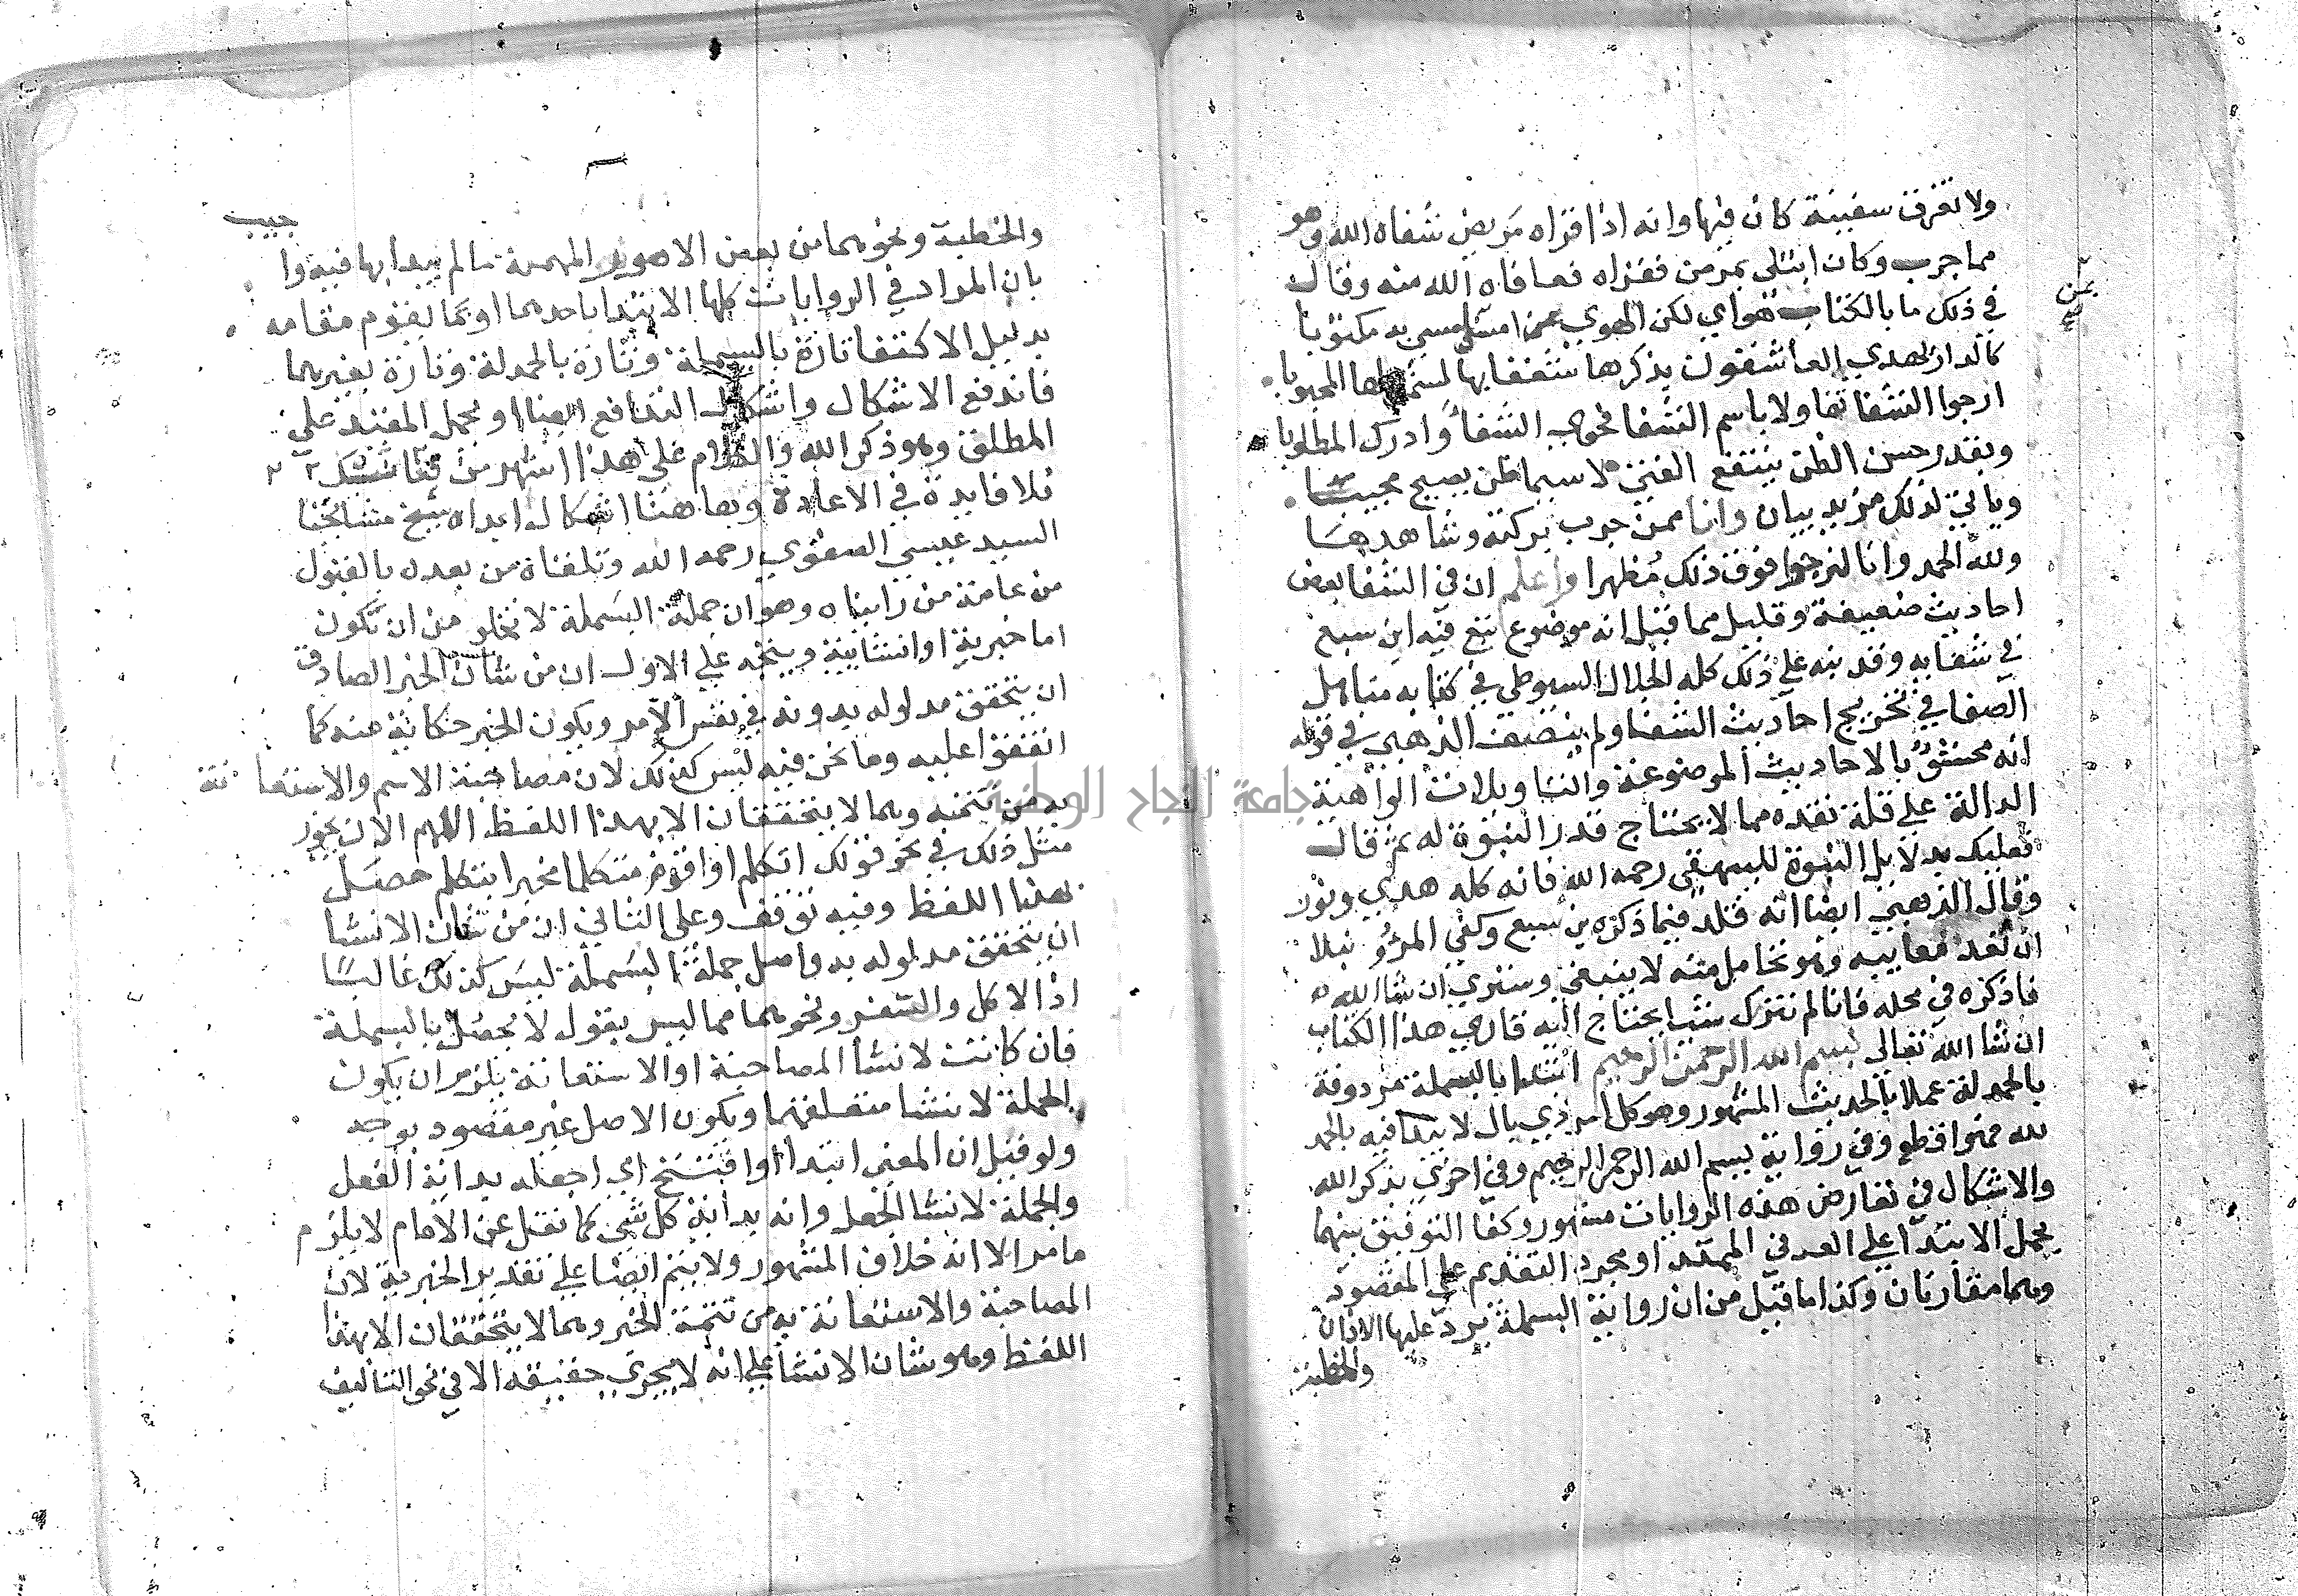 ولا تغرق سفينة كان فيها وانه اذا قراه مريض شفاه الله وهو
مما جرب وكان ابتلى بمرض فقراه فعافاه الله منه وقال
في ذلك ما بالكتاب هواي لكن الهوي امسى به مكتوبا
كالدار يهدي العاشقون بذكرها شغفا بها لشمولها المحبوبا
ارجوا الشفا تفاولا باسم الشفا فحوى الشفا وادرك المطلوبا
وبقدر حسن الظن ينتفع الفتى لا سيما ظن يصيح مجيبا
وياتي لذلك مزيد بيان وانا ممن جرب بركته وشاهدها
ولله الحمد وانا لنرجوا فوق ذلك مظهرا واعلم ان في الشفا بعض
احاديث ضعيفة وقليل مما قيل انه موضوع تبع فيه ابن سبع
في شفايه وقد نبه على ذلك كله الجلال السيوطي في كتابه مناهل
الصفا في تخريج احاديث الشفا ولم ينصف الذهبي في قوله
انه محشو بالاحاديث الموضوعة والتاويلات الواهية
الدالة علي قلة نقده مما لا يحتاج قدر النبوة له ثم قال
فعليك بدلايل النبوة للبيهقي رحمه الله فانه كله هدي ونور
وقال الذهبي ايضا انه قلد فيما ذكره بن سبع وكفي المرؤ نبلا
ان تعد معاييبه وهو تحامل منه لا ينبغي وستري ان شا الله
فاذكره في محله فانا لم نترك شيا يحتاج اليه قاري هذا الكتاب
ان شا الله تعالى بسم الله الرحمن الرحيم ابتدا بالبسملة مردوفة
بالحمدلة عملا بالحديث المشهور وهو كل امر ذي بال لا يبدا فيه بالحمد
لله فهو اقطع وفي رواية ببسم الله الرحمن الرحيم وفي اخري بذكر الله
والاشكال في تعارض هذه الروايات مشهور وكذا التوفيق بينهما
بحمل الابتدا علي العرفي الممتد او مجرد التقديم علي المقصود
وهما مقارنان وكذا ما قيل من ان رواية البسملة يرد عليها الاذان
والخطبة
والخطبة ونحوهما من بعض الامور المهمة ما لم يبدا بها فيه واجيب
بان المراد في الروايات كلها الابتدا باحدهما او بما يقوم مقامه
بدليل الاكتفا تارة بالبسملة وتارة بالحمدلة وتارة بغيرهما
فاندفع الاشكال واشكال التدافع ايضا او بحمل المقيد علي
المطلق وهو ذكر الله والكلام علي هذا اشهر من
فلا فايدة في الاعادة وها هنا اشكال ابداه شيخ مشايخنا
السيد عيسي الصفوي رحمه الله وتلقاه من بعده بالقبول
من عامة من رايناه وهو ان جملة البسملة لا تخلو من ان تكون
اما خبرية او انشايية ويتجه علي الاول ان من شان الخبر الصادق
ان يتحقق مدلوله بدونه في نفس الامر ويكون الخبر حكاية عنه كما
اتفقوا عليه وما نحن فيه ليس كذلك لان مصاحبة الاسم والاستعانة
به من تتمته وهما لا يتحققان الا بهذا اللفظ اللهم الا ان يجوز
مثل ذلك في نحو قولك اتكلم او اقوم متكلما مخبرا بتكلم حصل
بهذا اللفظ وفيه توقف وعلى الثاني ان من شان الانشا
ان يتحقق مدلوله به واصل جملة البسملة ليس كذلك غالبا
اذ الاكل والسفر ونحوهما مما ليس بقول لا يحصل بالبسملة
فان كانت لانشا المصاحبة او الاستعانة يلزم ان يكون
الجملة لانشا متعلقها ويكون الاصل غير مقصود بوجه
ولو قيل ان المعني ابتدا او افتتح اي اجعله بداية الفعل
والجملة لانشا الجعل وانه بداية كل شي كما نقل عن الامام لا يلزم
ما مر الا انه خلاف المشهور ولا يتم ايضا علي تقدير الخبرية لان
المصاحبة والاستعانة به من تتمة الخبر وهما لا يتحققان الا بهذا
اللفظ وهو شان الانشا علي انه لا يجري حقيقة الا في نحو التاليف
جامعة النجاح الوطنية